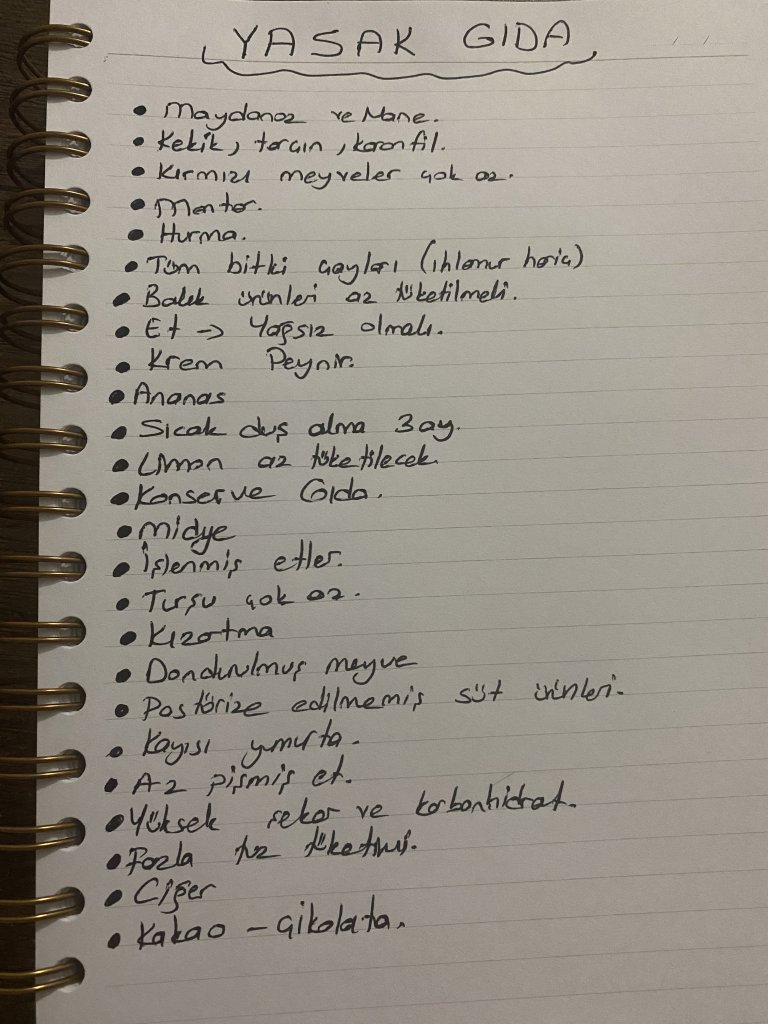 YASAK GIDA
• Maydanoz ve Nane.
• Kekik, tarçın, karanfil.
• Kırmızı meyveler çok az.
• Mantar.
• Hurma.
• Tüm bitki çayları (ıhlamur hariç)
• Balık ürünleri az tüketilmeli.
• Et → Yağsız olmalı.
• Krem Peynir.
• Ananas
• Sıcak duş alma 3 ay.
• Limon az tüketilecek.
• Konserve Gıda.
• Midye
• İşlenmiş etler.
• Turşu çok az.
• Kızartma
• Dondurulmuş meyve
• Pastörize edilmemiş süt ürünleri.
• Kayısı yumurta.
• Az pişmiş et.
• Yüksek şeker ve karbonhidrat.
• Fazla tuz tüketimi.
• Ciğer
• Kakao – çikolata.